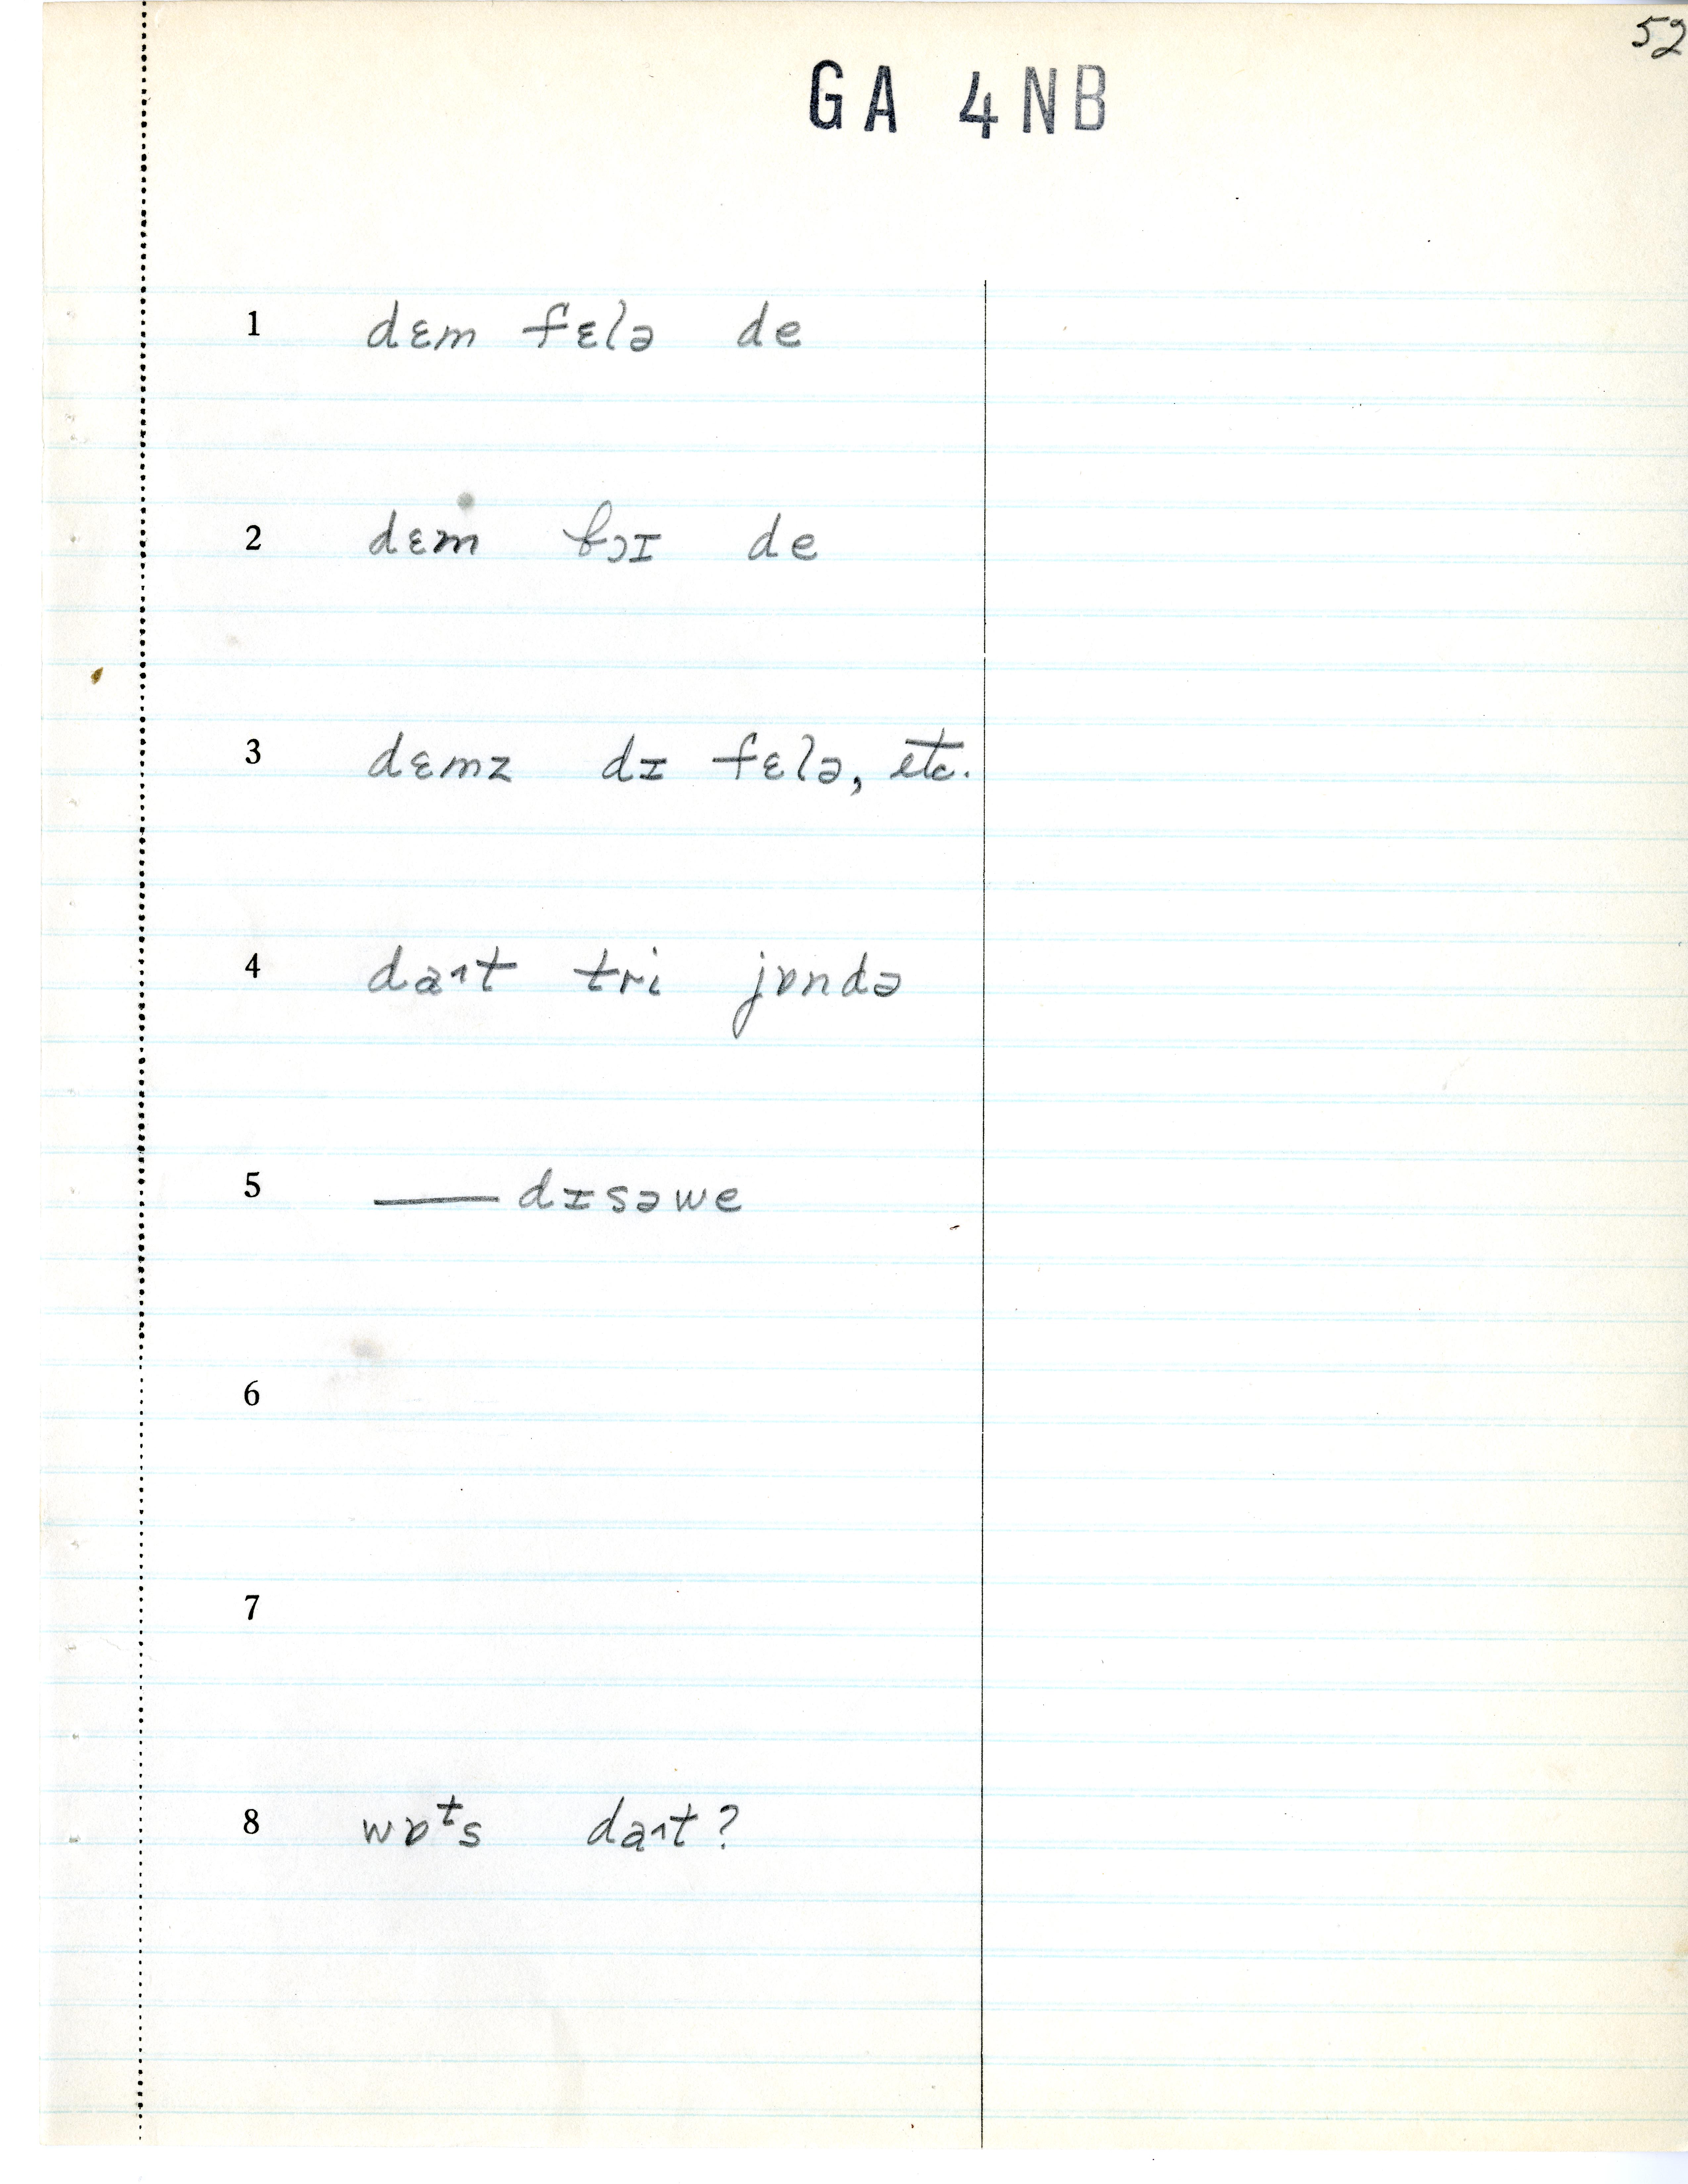 52
GA 4NB
1 dɛm fɛlə de
2 dɛm ɓɔɪ de
3 dɛmz dɪ fɛlə, etc.
4 da˄t tri jɒndə
5 —— dɪsəwe
6
7
8 wɒᵗs da˄t?